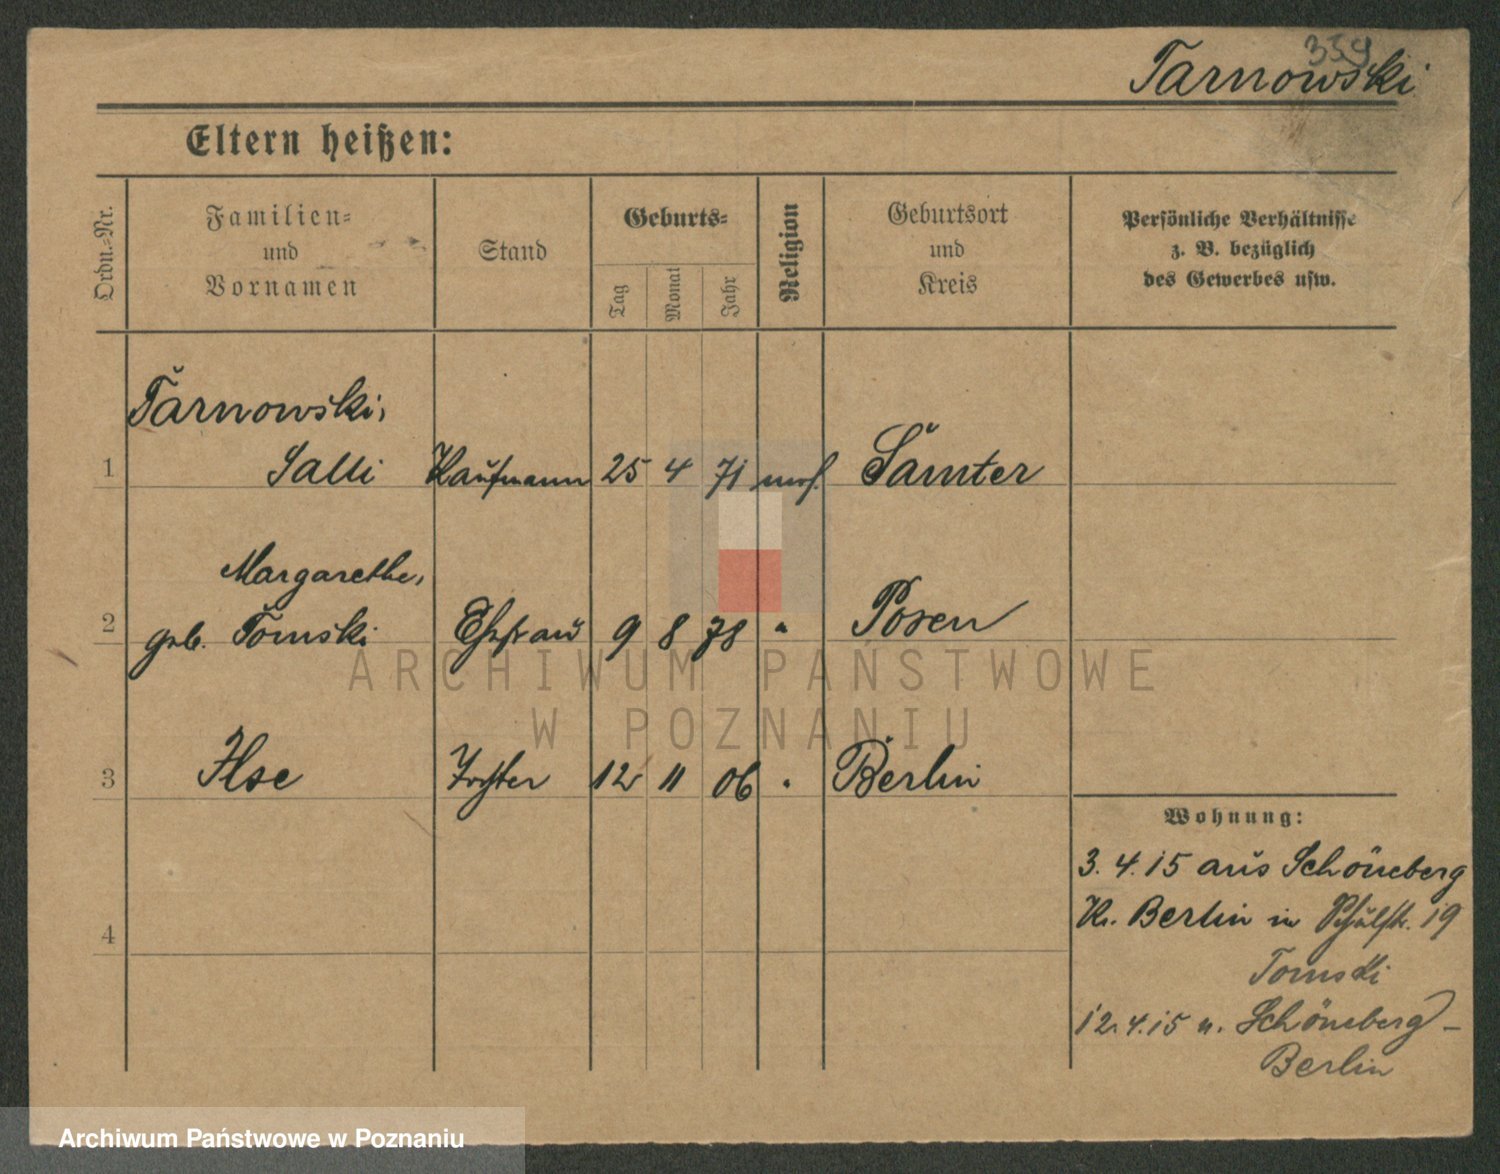 359
Tarnowski
Eltern heißen:
Ordn.=Nr.
Familien=
und
Vornamen
Stand
Geburts=
Tag
Monat
Jahr
Religion
Geburtsort
und
Kreis
Persönliche Verhältnisse
z. B. bezüglich
des Gewerbes usw.
Tarnowski,
1 Salli Kaufmann 25 4 71 mos. Samter
Margarethe,
2 geb. Tomski Ehefrau 9 8 78 " Posen
3 Ilse Tochter 12 11 06 " Berlin
4
Wohnung:
3. 4. 15 aus Schöneberg
Kr. Berlin in 19
Tomski
12. 4. 15 n. Schöneberg-
Berlin
ARCHIWUM PAŃSTWOWE
W POZNANIU
Archiwum Państwowe w Poznaniu